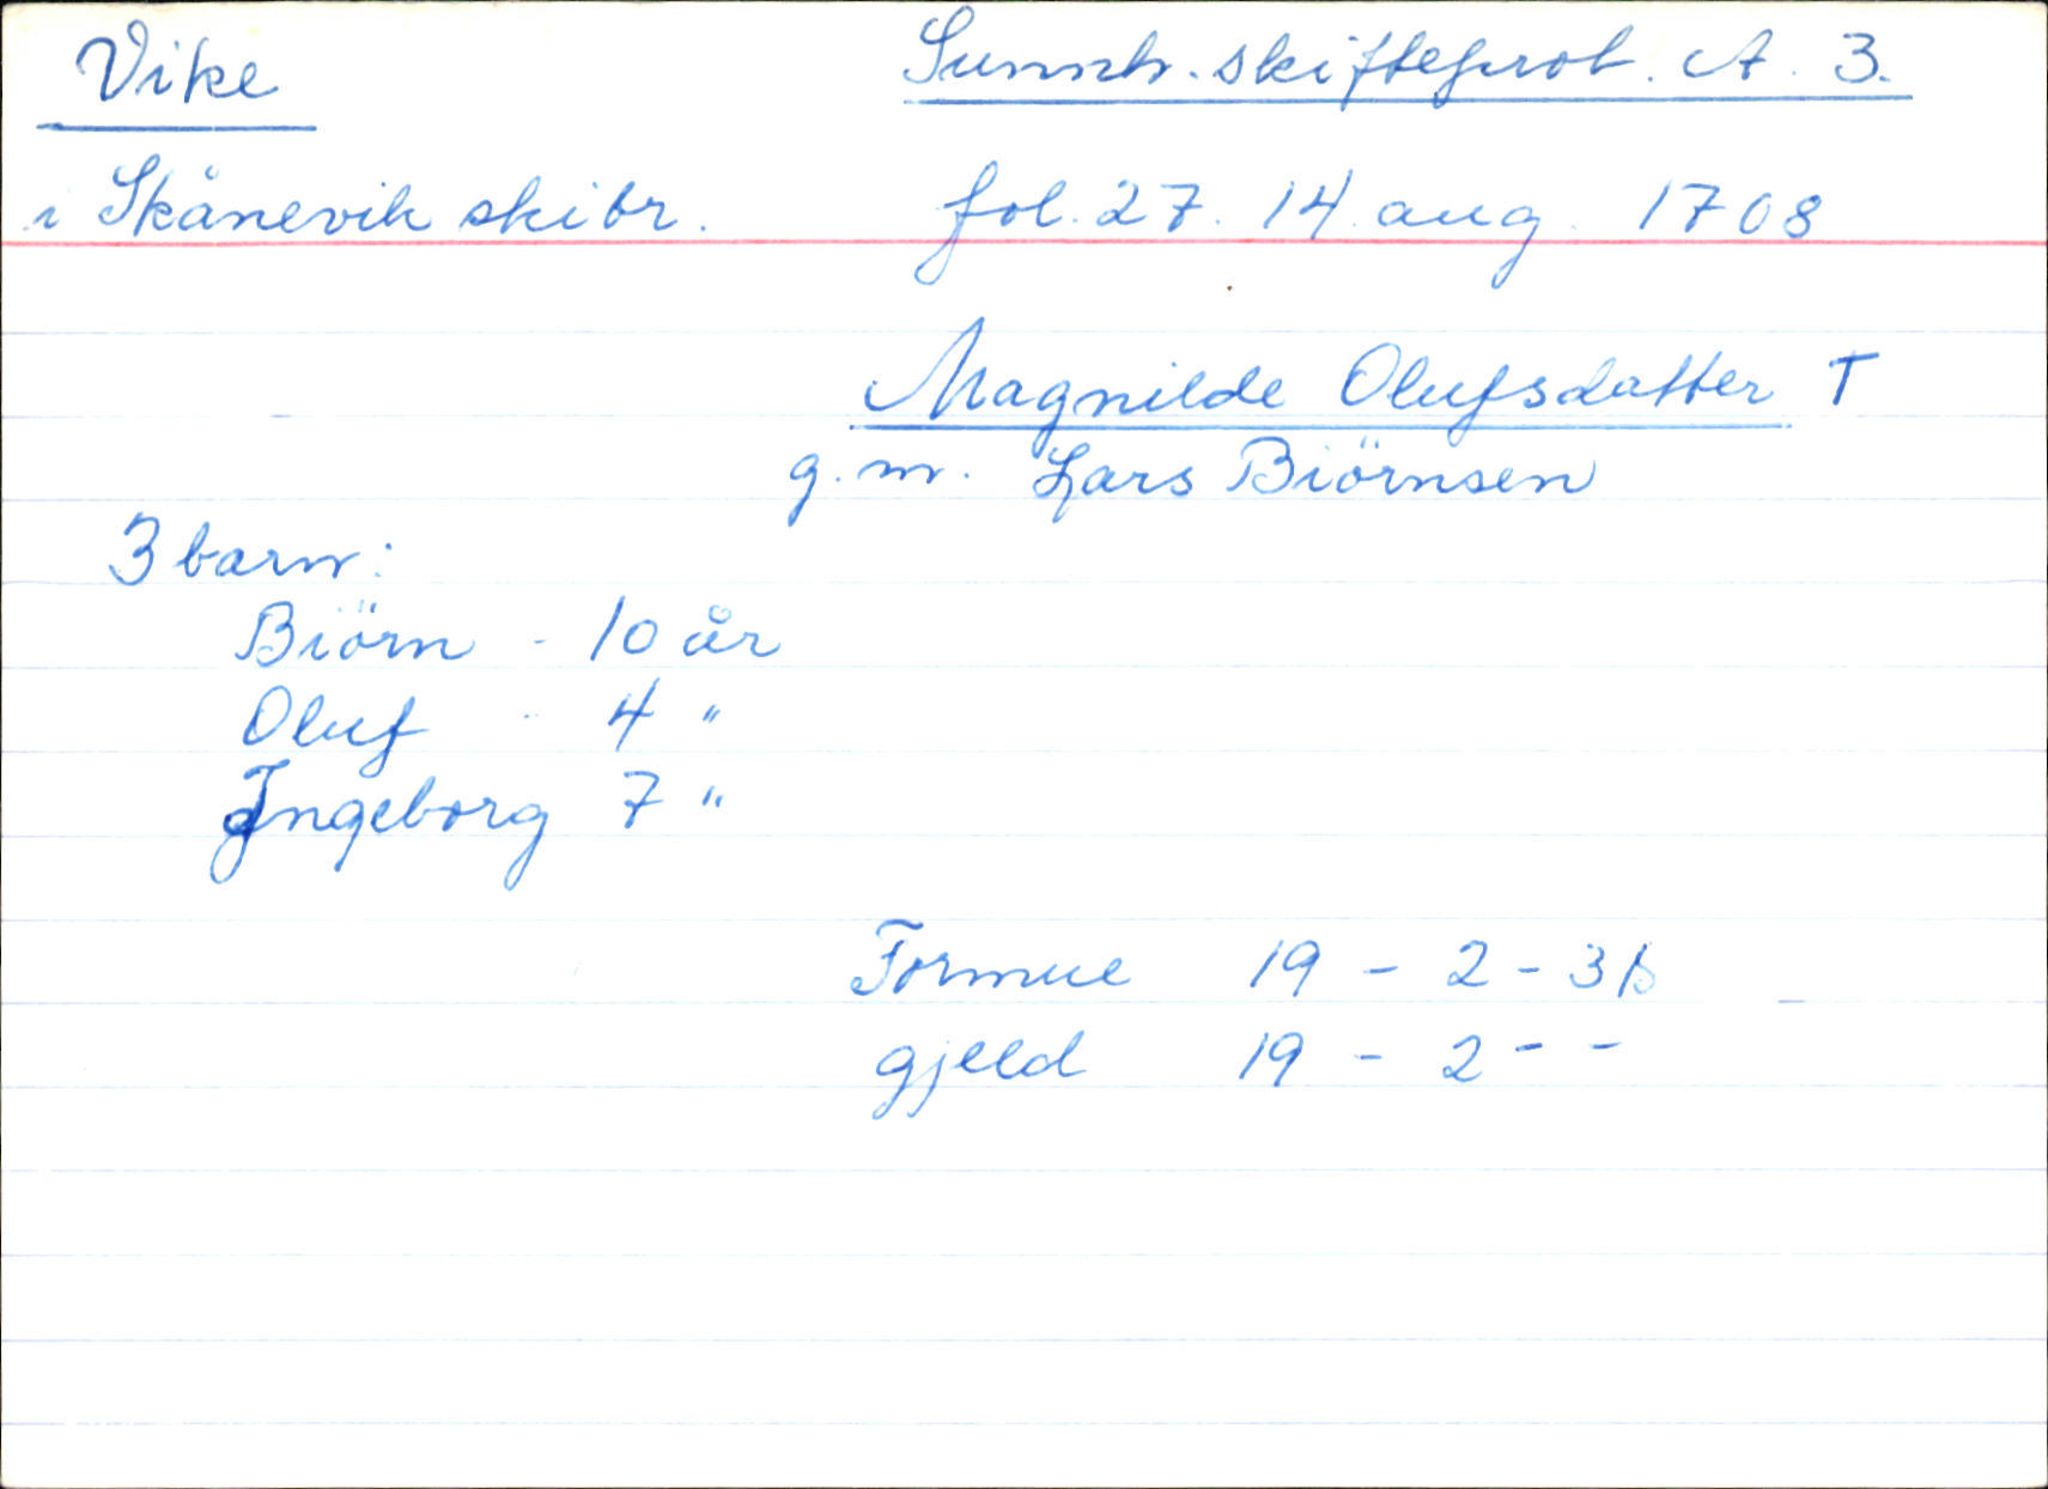 Vike
Sunnh. skifteprot. A. 3.
i Skånevik skibr.
fol. 27. 14. aug. 1708
Magnilde Olufsdatter †
g. m. Lars Biörnsen
3 barn:
Biörn - 10 år
Oluf - 4 "
Ingeborg 7 "
Formue 19 - 2 - 3 ß
gjeld 19 - 2 - -